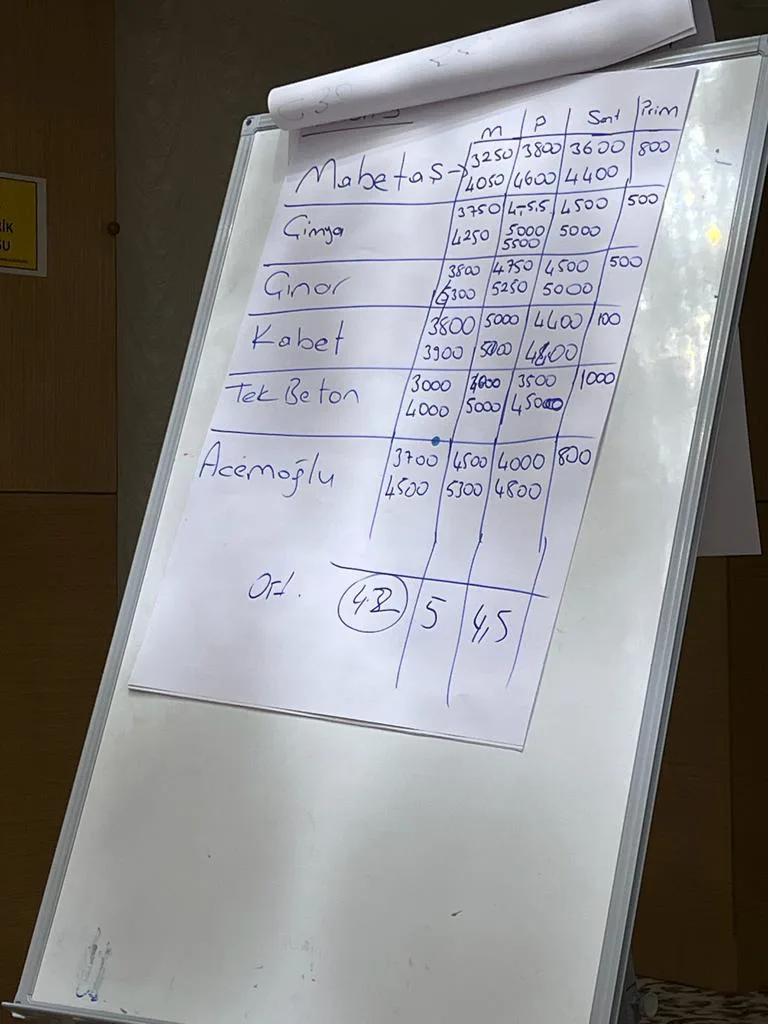 M P Sant Prim
Mabetaş → 3250 3800 3600 800
4050 4600 4400
Çimya 3750 4,-5.5 4500 500
4250 5000 5000
5500
Çınar 3800 4750 4500 500
5300 5250 5000
Kabet 3800 5000 4400 100
3900 5000 4800
Tek Beton 3000 3500 1000
4000 5000 4500
Acemoğlu 3700 4500 4000 800
4500 5300 4800
Ort. 42 5 4,5